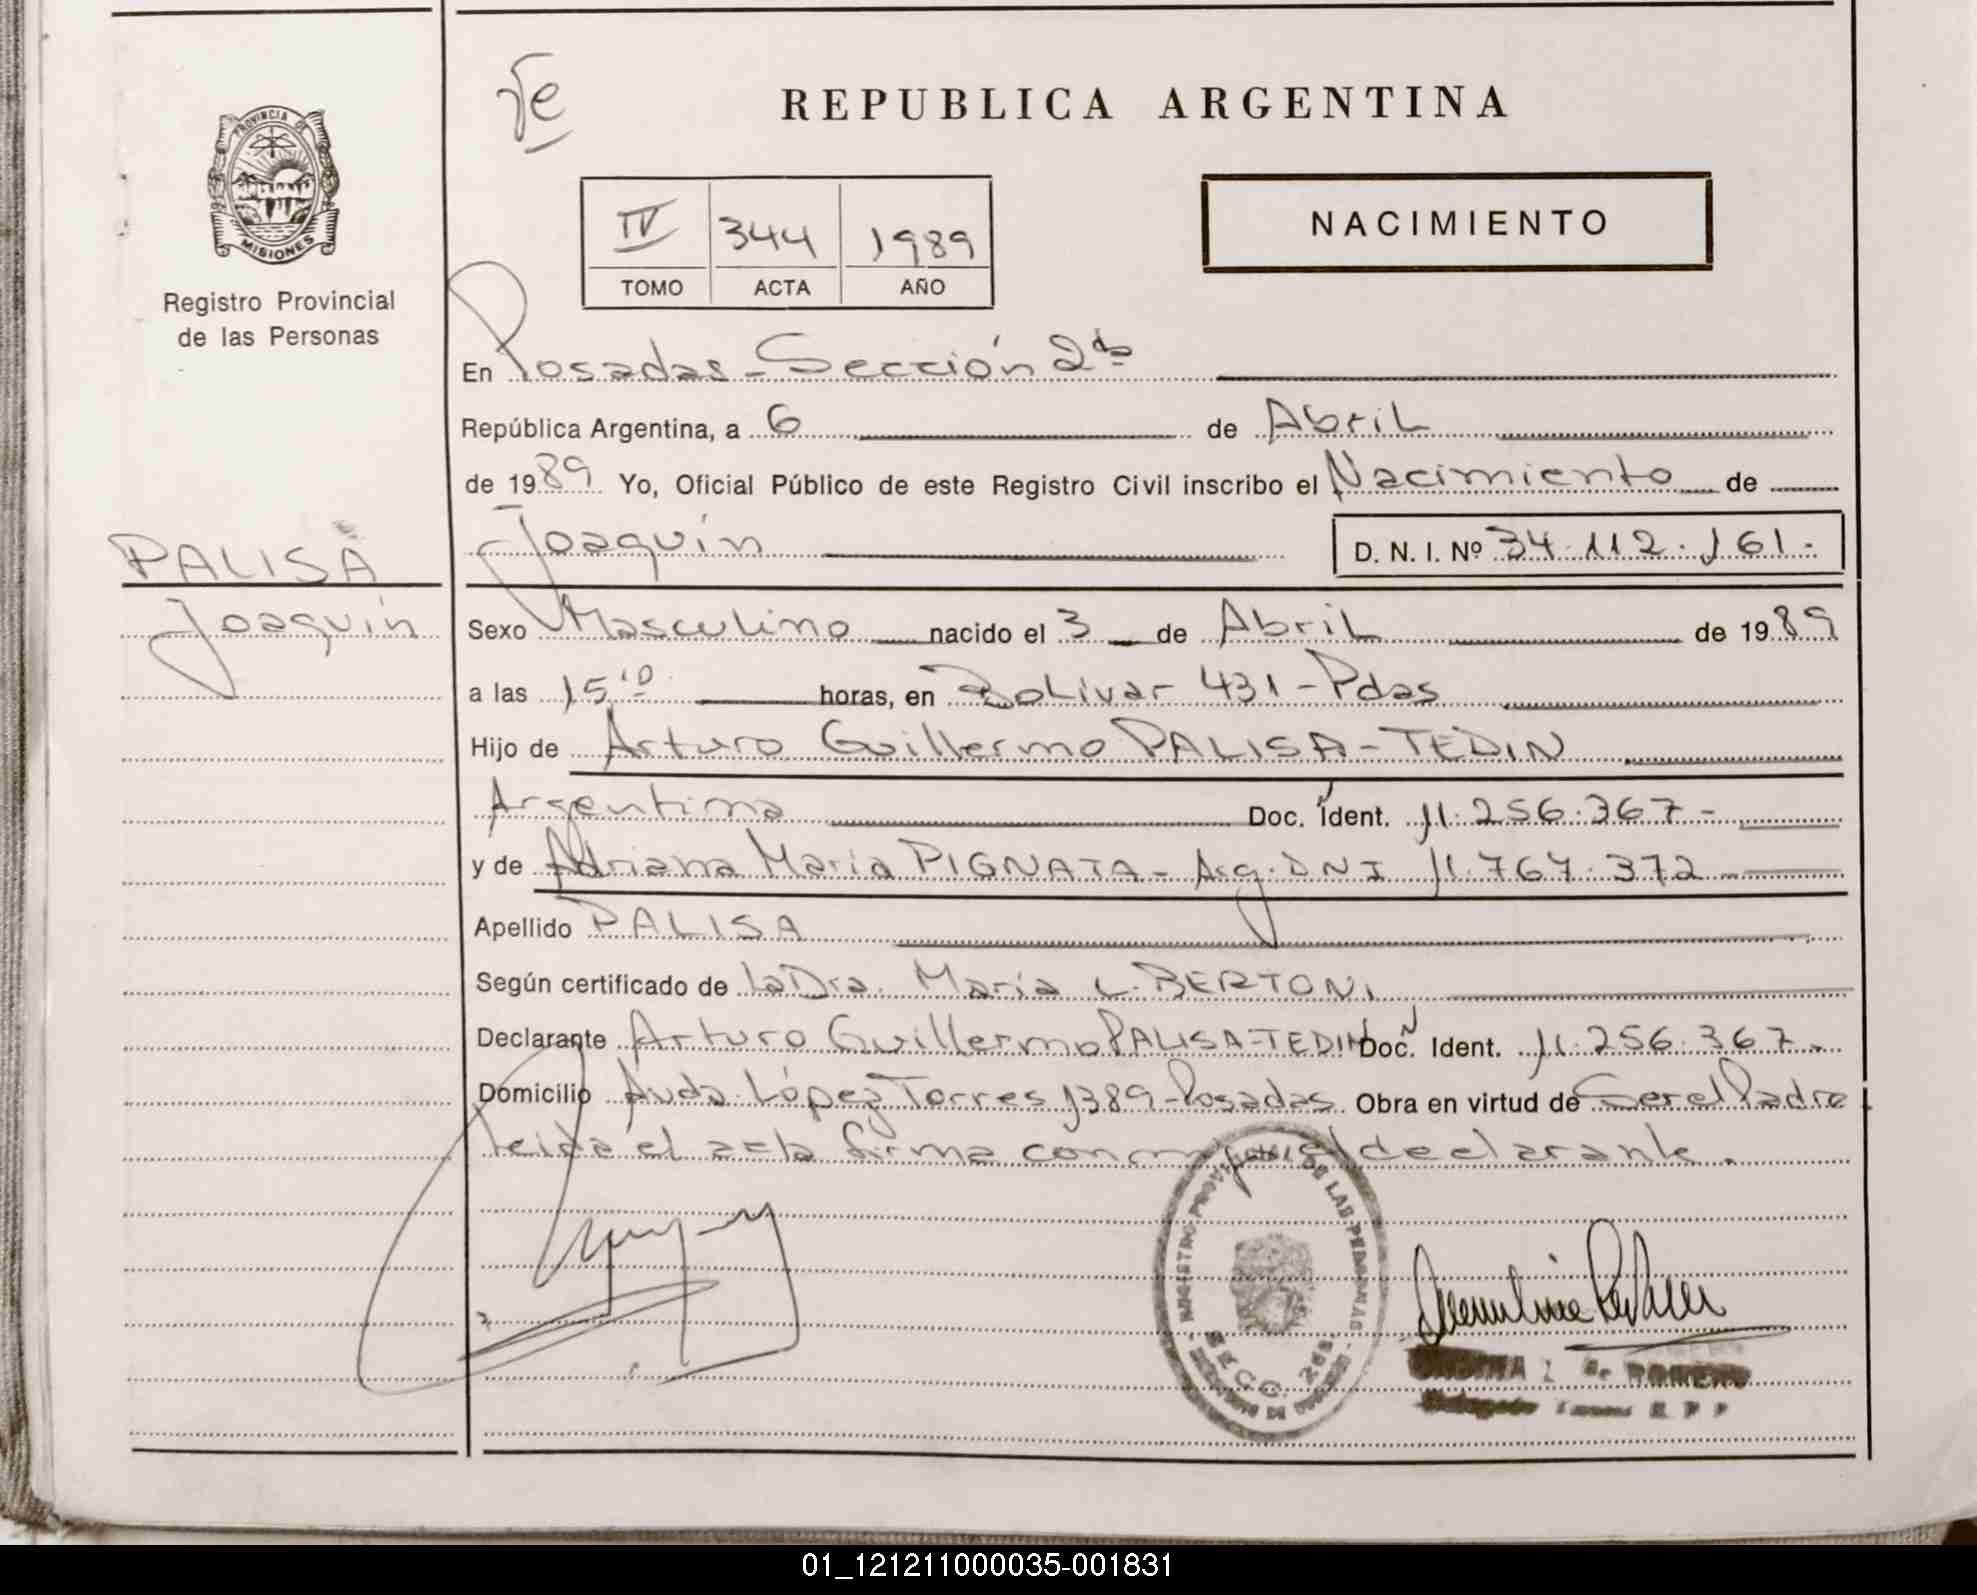 PROVINCIA DE
MISIONES
Registro Provincial
de las Personas
REPUBLICA ARGENTINA
NACIMIENTO
IV 344 1989
TOMO ACTA AÑO
En Posadas - Sección 2da
República Argentina, a 6 de Abril
de 1989 Yo, Oficial Público de este Registro Civil inscribo el Nacimiento de
Joaquín D. N. I. Nº 34.112.161.
PALISA
Joaquín
Sexo Masculino nacido el 3 de Abril de 1989
a las 15 10 horas, en Bolivar 431 - Pdas
Hijo de Arturo Guillermo PALISA - TEDIN
Argentina Doc. Ident. 11.256.367 -
y de Adriana María PIGNATA - Arg. DNI 11.767.372
Apellido PALISA
Según certificado de la Dra. María L. BERTONI
Declarante Arturo Guillermo PALISA - TEDIN Doc. Ident. 11.256.367.
Domicilio Avda. López Torres 1389 - Posadas. Obra en virtud de Ser el Padre
leida el acta firma conmigo el declarante.
REGISTRO PROVINCIAL DE LAS PERSONAS
SECC. 2da
DE ROMERO
01_121211000035-001831